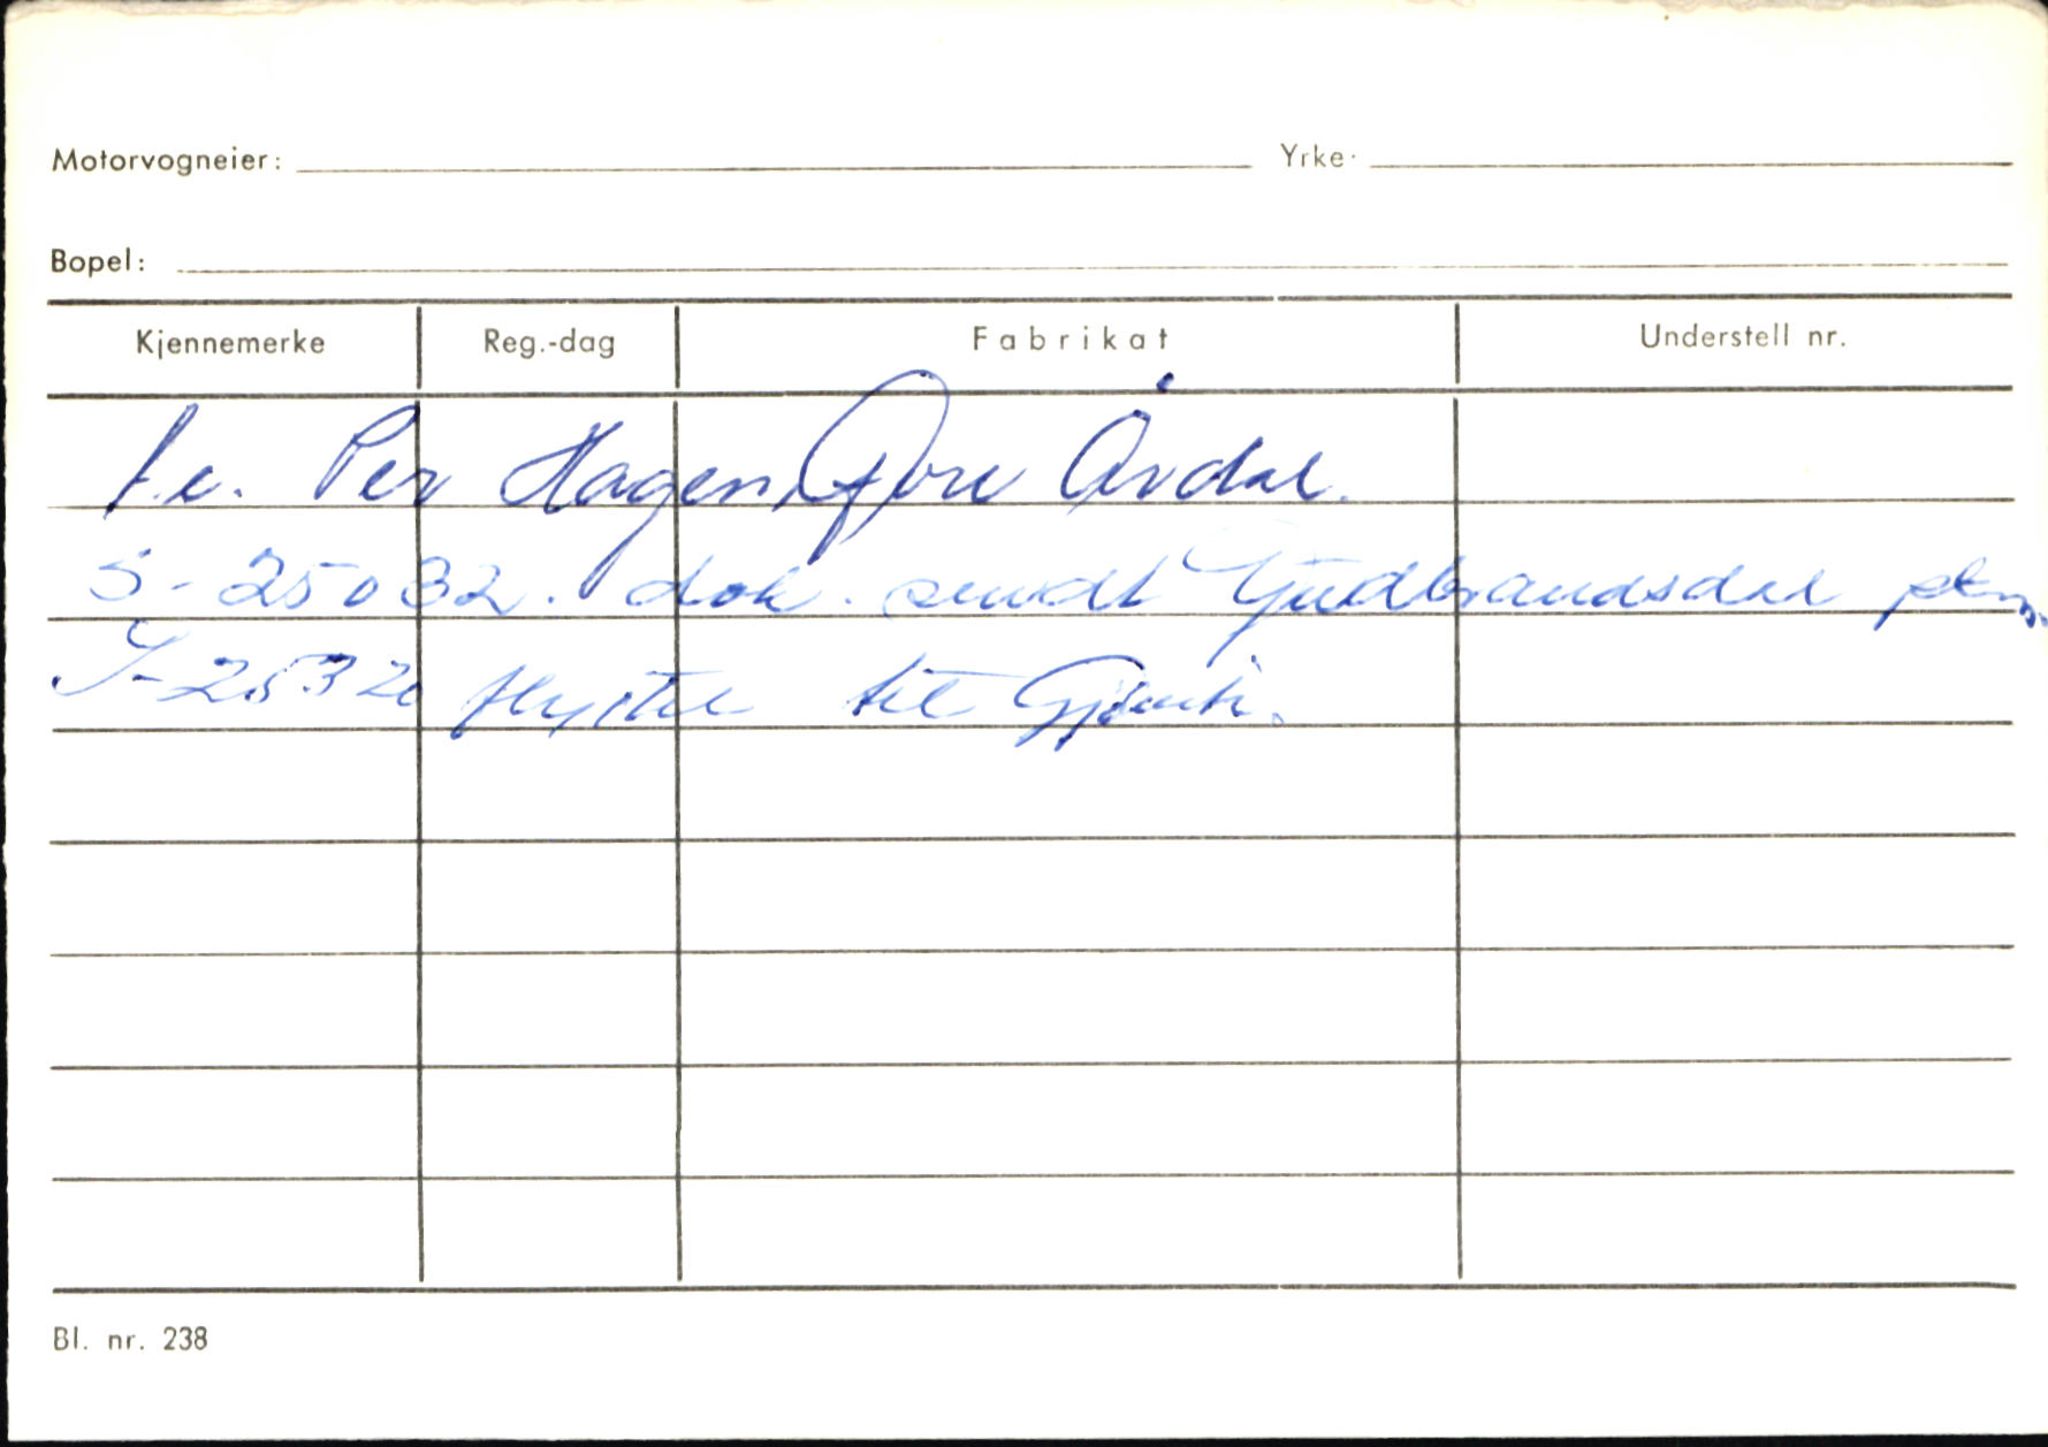 Motorvogneier: Yrke:
Bopel:
Kjennemerke Reg.-dag Fabrikat Understell nr.
Per Hagen, Øvre Årdal.
S-25032. dok. sendt Gudbrandsdal
S-25320 flyttet til
Bl. nr. 238